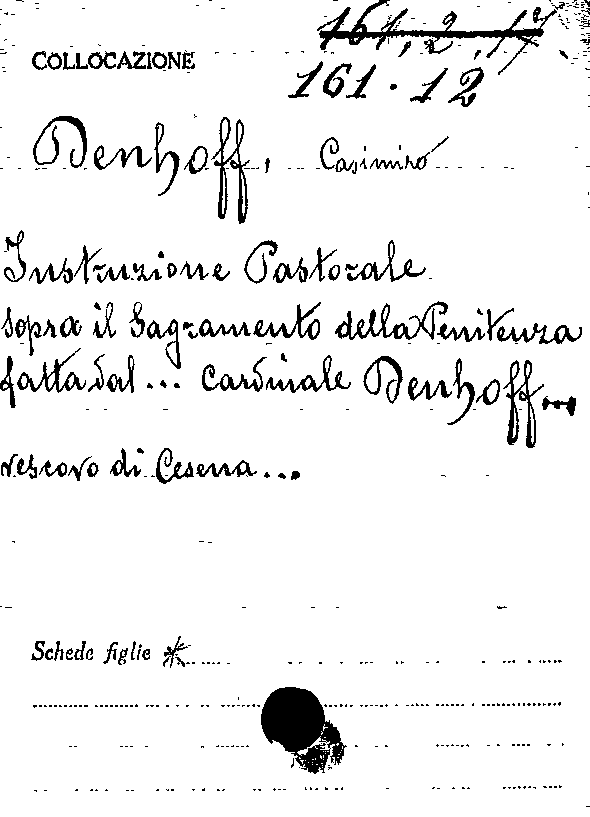 161, 2, 17
COLLOCAZIONE
161.12
Denhoff, Casimiro
Instruzione Pastorale
sopra il Sagramento della Penitenza
fatta dal... cardinale Denhoff...
vescovo di Cesena...
Schede figlie *